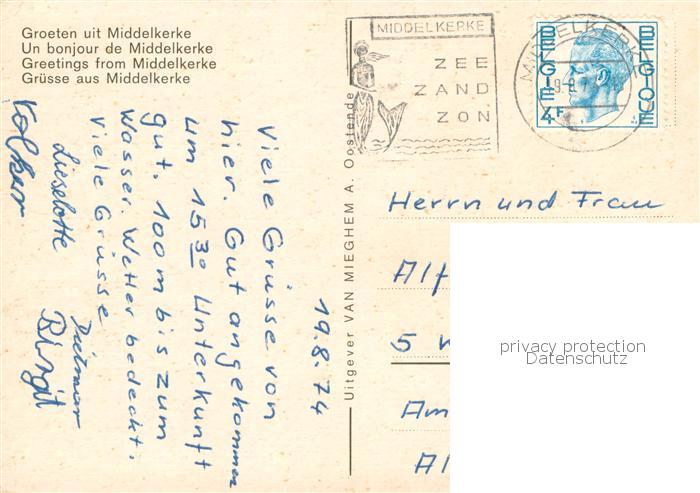 Groeten uit Middelkerke
Un bonjour de Middelkerke
Greetings from Middelkerke
Grüsse aus Middelkerke
MIDDELKERKE
ZEE
ZAND
ZON
MIDDELKERKE
BELGIE
BELGIQUE
4F
19.8.74
Viele Grüsse von
hier. Gut angekommen
um 15³⁰ Unterkunft
gut. 100m bis zum
Wasser. Wetter bedeckt.
Viele Grüsse
Dietmar
Lieselotte Birgit
Volker
Uitgever VAN MIEGHEM A. Oostende
Herrn und Frau
Alf
5
Am
Al
privacy protection
Datenschutz